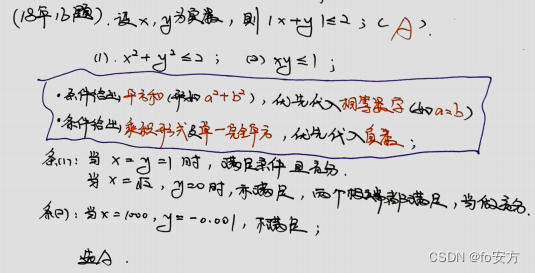 (18年16题). 设x, y为实数, 则|x+y|≤2; (A).
(1). x²+y²≤2; (2) xy≤1;
·条件给出平方和(形如a²+b²), 优先代入相等数字(如a=b)
·条件给出乘积形式及单一完全平方, 优先代入负数;
条(1): 当x=y=1时, 满足条件且充分.
当x=√2, y=0时, 亦满足, 两个极端都满足, 当做充分.
条(2): 当x=1000, y=-0.001, 不满足;
选A.
CSDN @fo安方